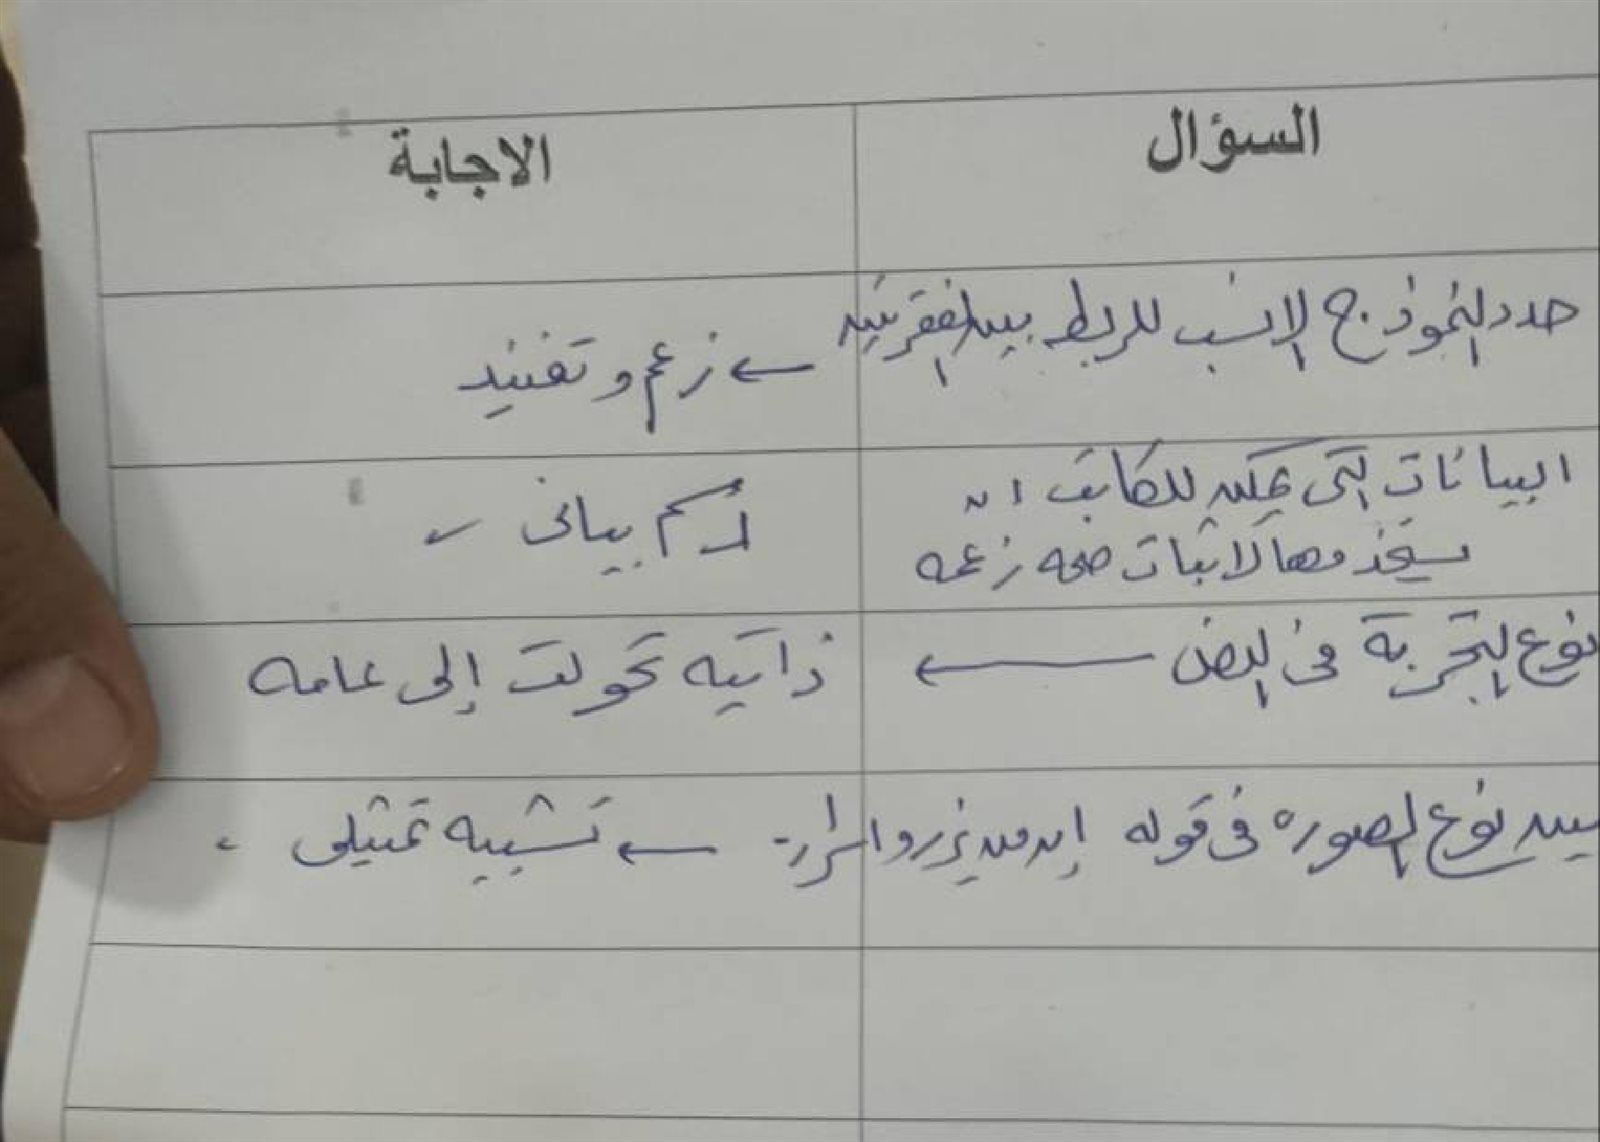 السؤال
الاجابة
حدد النموذج الانسب للربط بين الفقرتين
← زعم وتفنيد
البيانات التى يمكن للكاتب ان
يستخدمها لاثبات صحه زعمه
رسم بيانى
نوع التجربة فى النص ←
ذاتيه تحولت إلى عامه
نوع الصوره فى قوله إن من يزرع
← تشبيه تمثيلى